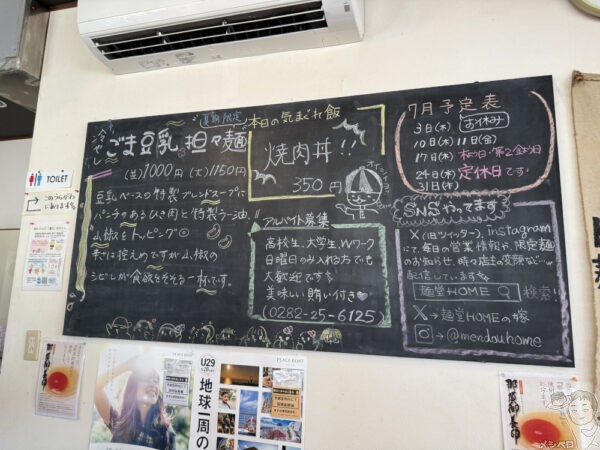 夏期限定
冷やし ごま豆乳担々麺
(並)1000円 (大)1150円
豆乳ベースの特製ブレンドスープに
パンチのあるひき肉と特製ラー油、
山椒をトッピング
辛さは控えめですが山椒の
シビレが食欲をそそる一杯です。
本日の気まぐれ飯
焼肉丼!!
350円
アルバイト募集
高校生、大学生、Wワーク
日曜日のみ入れる方でも
大歓迎です
美味しい賄い付き
(0282-25-6125)
7月予定表
3日(木) お休み
10日(木)11日(金)
17日(木)
24日(木) 定休日です
31日(木)
SNSやってます
X(旧ツイッター)、Instagram
にて、毎日の営業情報や、限定麺
のお知らせ、時々店主の変顔など…
配信しています
麺堂HOME 検索!
X→麺堂HOMEの嫁
→@mendouhome
TOILET
このうらがわ
にあります
PEACE BOAT
U29
地球一周の
PEACE BOAT
那須御養卵
那須御養卵
メシペロ